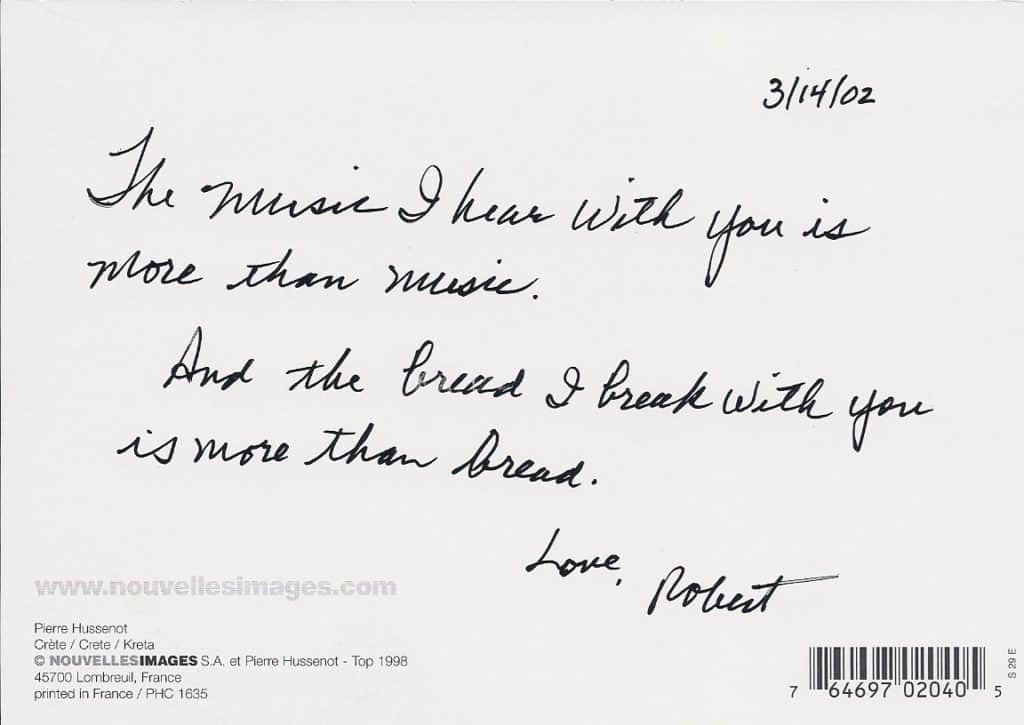 3/14/02
The music I hear with you is
more than music.
And the bread I break with you
is more than bread.
Love,
Robert
www.nouvellesimages.com
Pierre Hussenot
Crète / Crete / Kreta
© NOUVELLESIMAGES S.A. et Pierre Hussenot - Top 1998
45700 Lombreuil, France
printed in France / PHC 1635
7 64697 02040 5
S 29 E